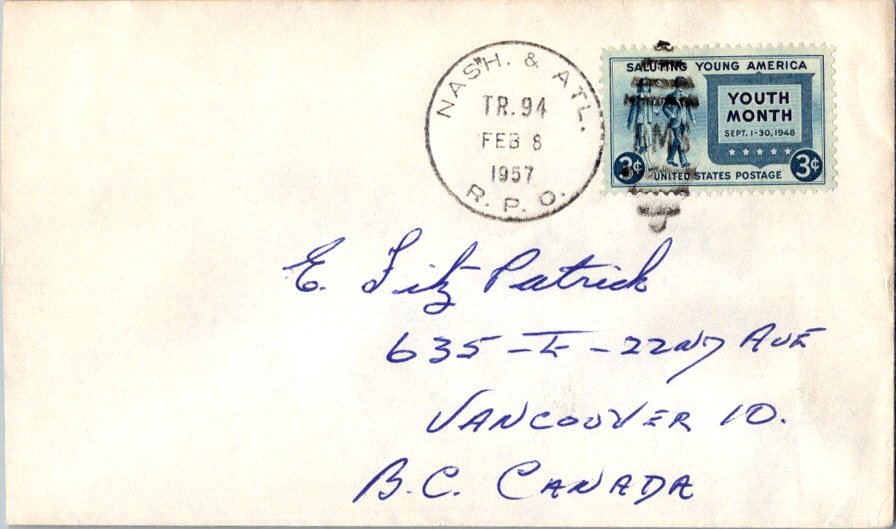 NASH. & ATL.
TR. 94
FEB 8
1957
R. P. O.
SALUTING YOUNG AMERICA
YOUTH
MONTH
SEPT. 1-30, 1948
3¢ 3¢
UNITED STATES POSTAGE
RMS
E. FitzPatrick
635 - E - 22ND AVE
VANCOUVER 10.
B.C. CANADA